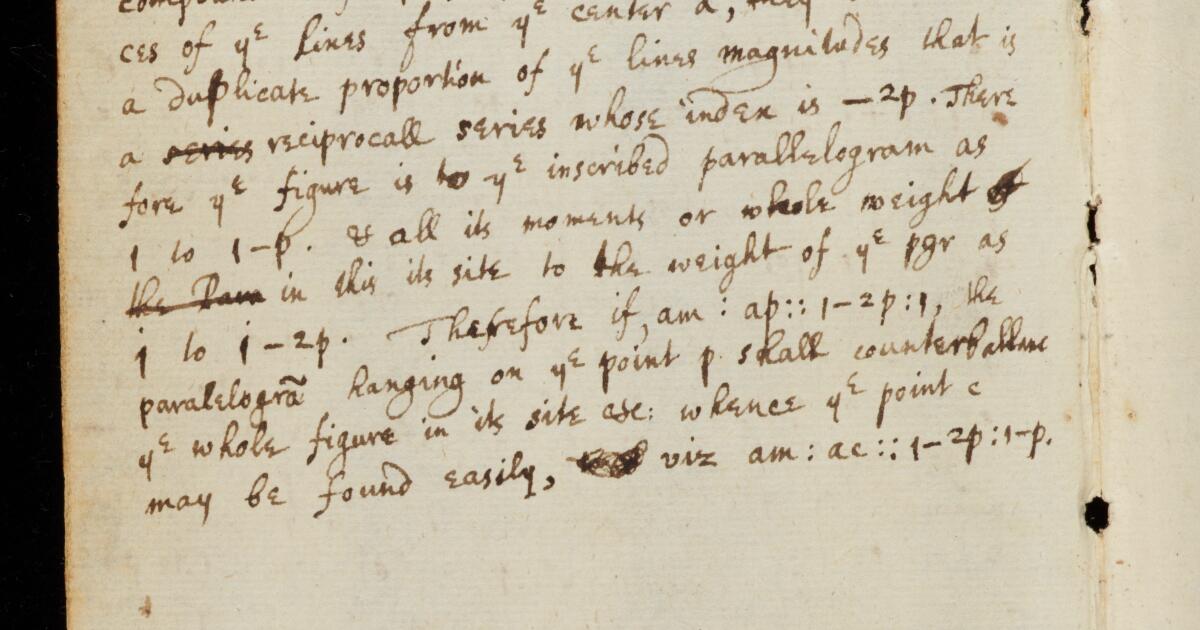 ces of yᵉ lines from yᵉ center a, they
a duplicate proportion of yᵉ lines magnitudes that is
a series reciprocall series whose index is −2p. There
fore yᵉ figure is to yᵉ inscribed parallelogram as
1 to 1−p. & all its moments or whole weight of
the Para in this its site to the weight of yᵉ pgr as
1 to 1−2p. Therefore if, am : ap :: 1−2p : 1, the
paralelogrã hanging on yᵉ point p shall counterballanc
yᵉ whole figure in its site &c: whence yᵉ point c
may be found easily, viz am : ac :: 1−2p : 1−p.